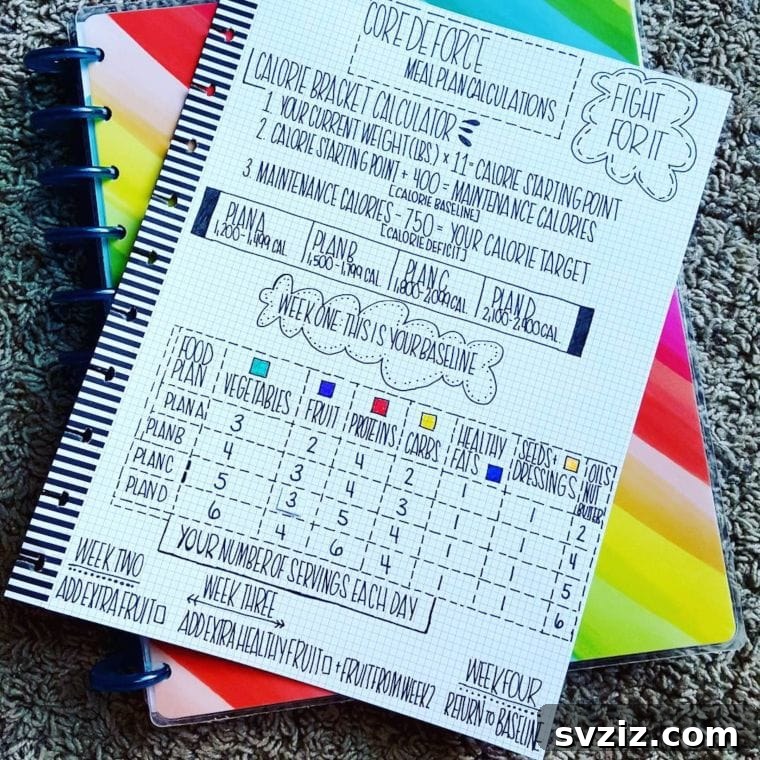 CORE DE FORCE
MEAL PLAN CALCULATIONS
FIGHT
FOR IT
CALORIE BRACKET CALCULATOR
1. YOUR CURRENT WEIGHT (LBS) × 11 = CALORIE STARTING POINT
2. CALORIE STARTING POINT + 400 = MAINTENANCE CALORIES
[CALORIE BASELINE]
3. MAINTENANCE CALORIES - 750 = YOUR CALORIE TARGET
[CALORIE DEFICIT]
PLAN A PLAN B PLAN C PLAN D
1,200-1,499 CAL 1,500-1,799 CAL 1,800-2,099 CAL 2,100-2,400 CAL
WEEK ONE THIS IS YOUR BASELINE
FOOD PLAN VEGETABLES FRUIT PROTEINS CARBS HEALTHY FATS SEEDS + DRESSINGS OILS NUT BUTER
PLAN A 3 2 4 2 1 1 2
PLAN B 4 3 4 3 1 1 4
PLAN C 5 3 5 4 1 1 5
PLAN D 6 4 6 4 1 1 6
YOUR NUMBER OF SERVINGS EACH DAY
WEEK TWO
ADD EXTRA FRUIT
WEEK THREE
ADD EXTRA HEALTHY FRUIT + FRUIT FROM WEEK 2
WEEK FOUR
RETURN TO BASELINE
svziz.com